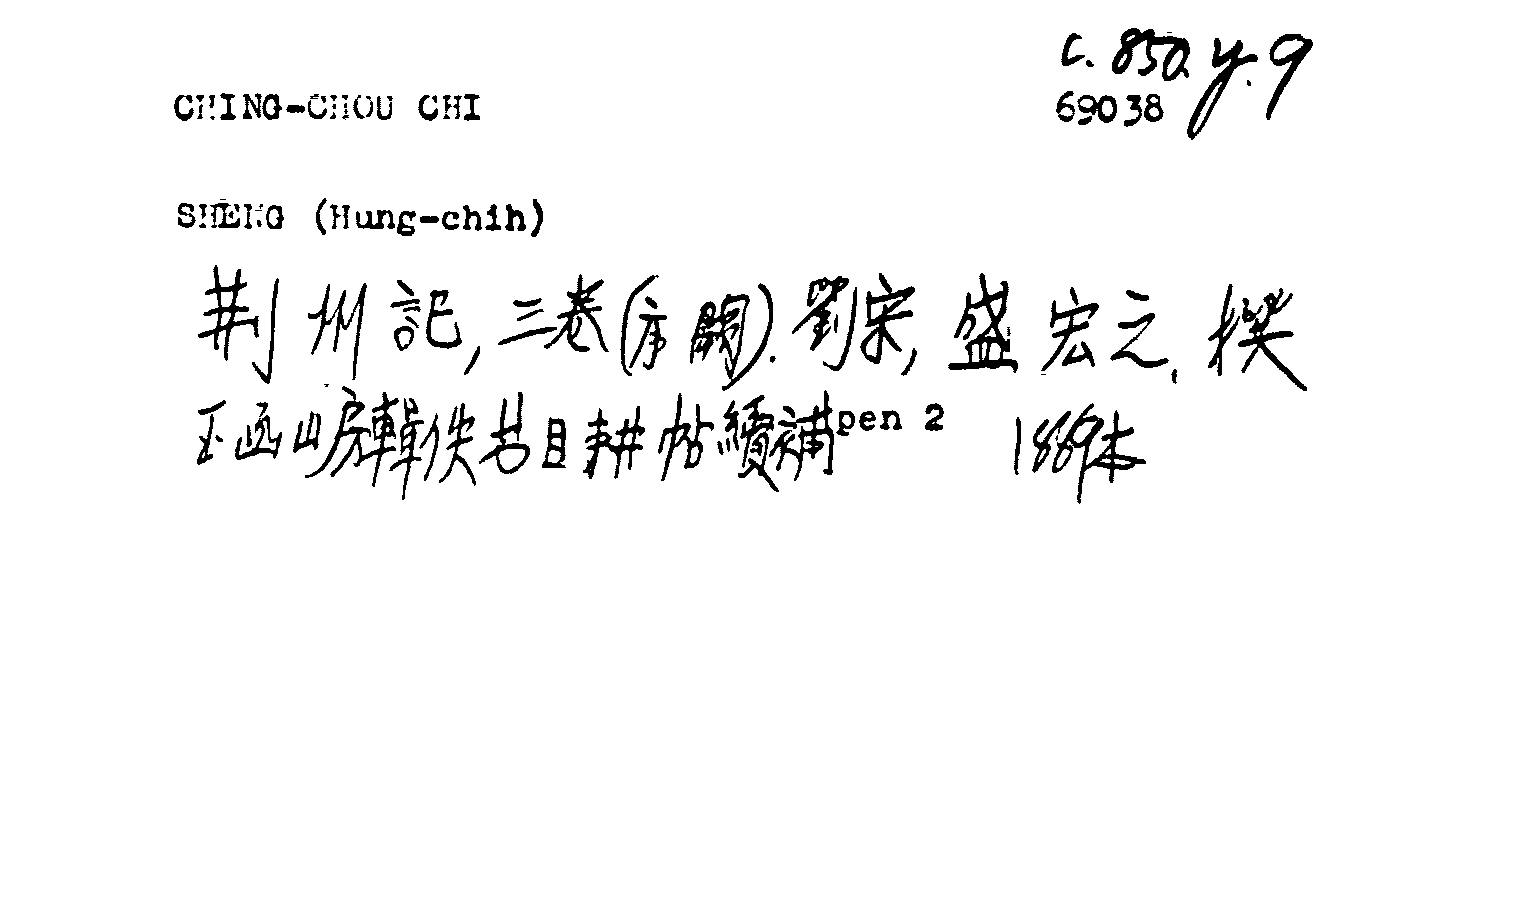 c. 850. y. 9
CHING-CHOU CHI 69038
SHENG (Hung-chih)
荆州記, 三卷(序闕). 劉宋, 盛宏之, 撰
玉函山房輯佚書目耕帖續補 pen 2 1889本